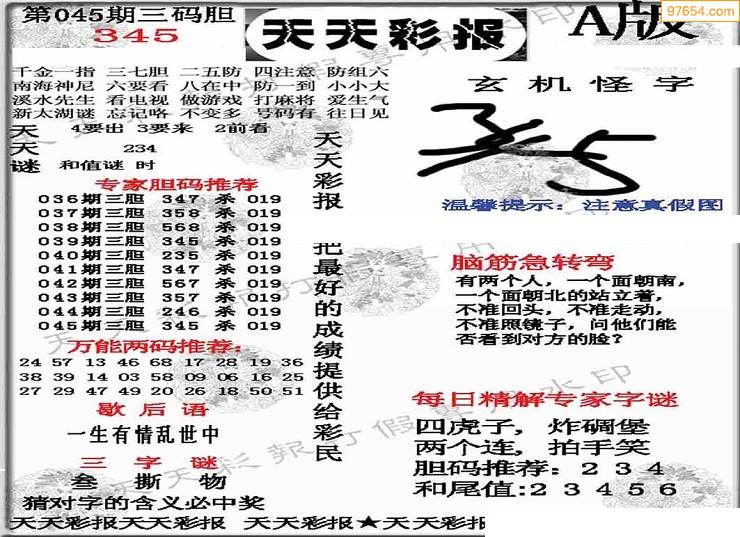 第045期三码胆
345
天天彩报
A版
97654.com
千金一指 三七胆 二五防 四注意 防组六
南海神尼 六要看 八在中 防一到 小小大
溪水先生 看电视 做游戏 打麻将 爱生气
新太湖谜 忘记咯 不变多 号码有 往日见
天 4要出 3要来 2前看
天 234
谜 和值谜 时
专家胆码推荐
036期三胆 347 杀 019
037期三胆 358 杀 019
038期三胆 568 杀 019
039期三胆 345 杀 019
040期三胆 235 杀 019
041期三胆 347 杀 019
042期三胆 567 杀 019
043期三胆 357 杀 019
044期三胆 246 杀 019
045期三胆 345 杀 019
万能两码推荐:
24 57 13 46 68 17 28 19 36
38 39 14 03 58 09 06 16 25
27 29 47 49 20 26 18 50 51
歇后语
一生有情乱世中
三字谜
叁撕物
猜对字的含义必中奖
天天彩报 把最好的成绩提供给彩民
玄机怪字
温馨提示: 注意真假图
脑筋急转弯
有两个人, 一个面朝南,
一个面朝北的站立着,
不准回头, 不准走动,
不准照镜子, 问他们能
否看到对方的脸?
每日精解专家字谜
四虎子, 炸碉堡
两个连, 拍手笑
胆码推荐: 2 3 4
和尾值:2 3 4 5 6
天天彩报天天彩报 天天彩报★天天彩报